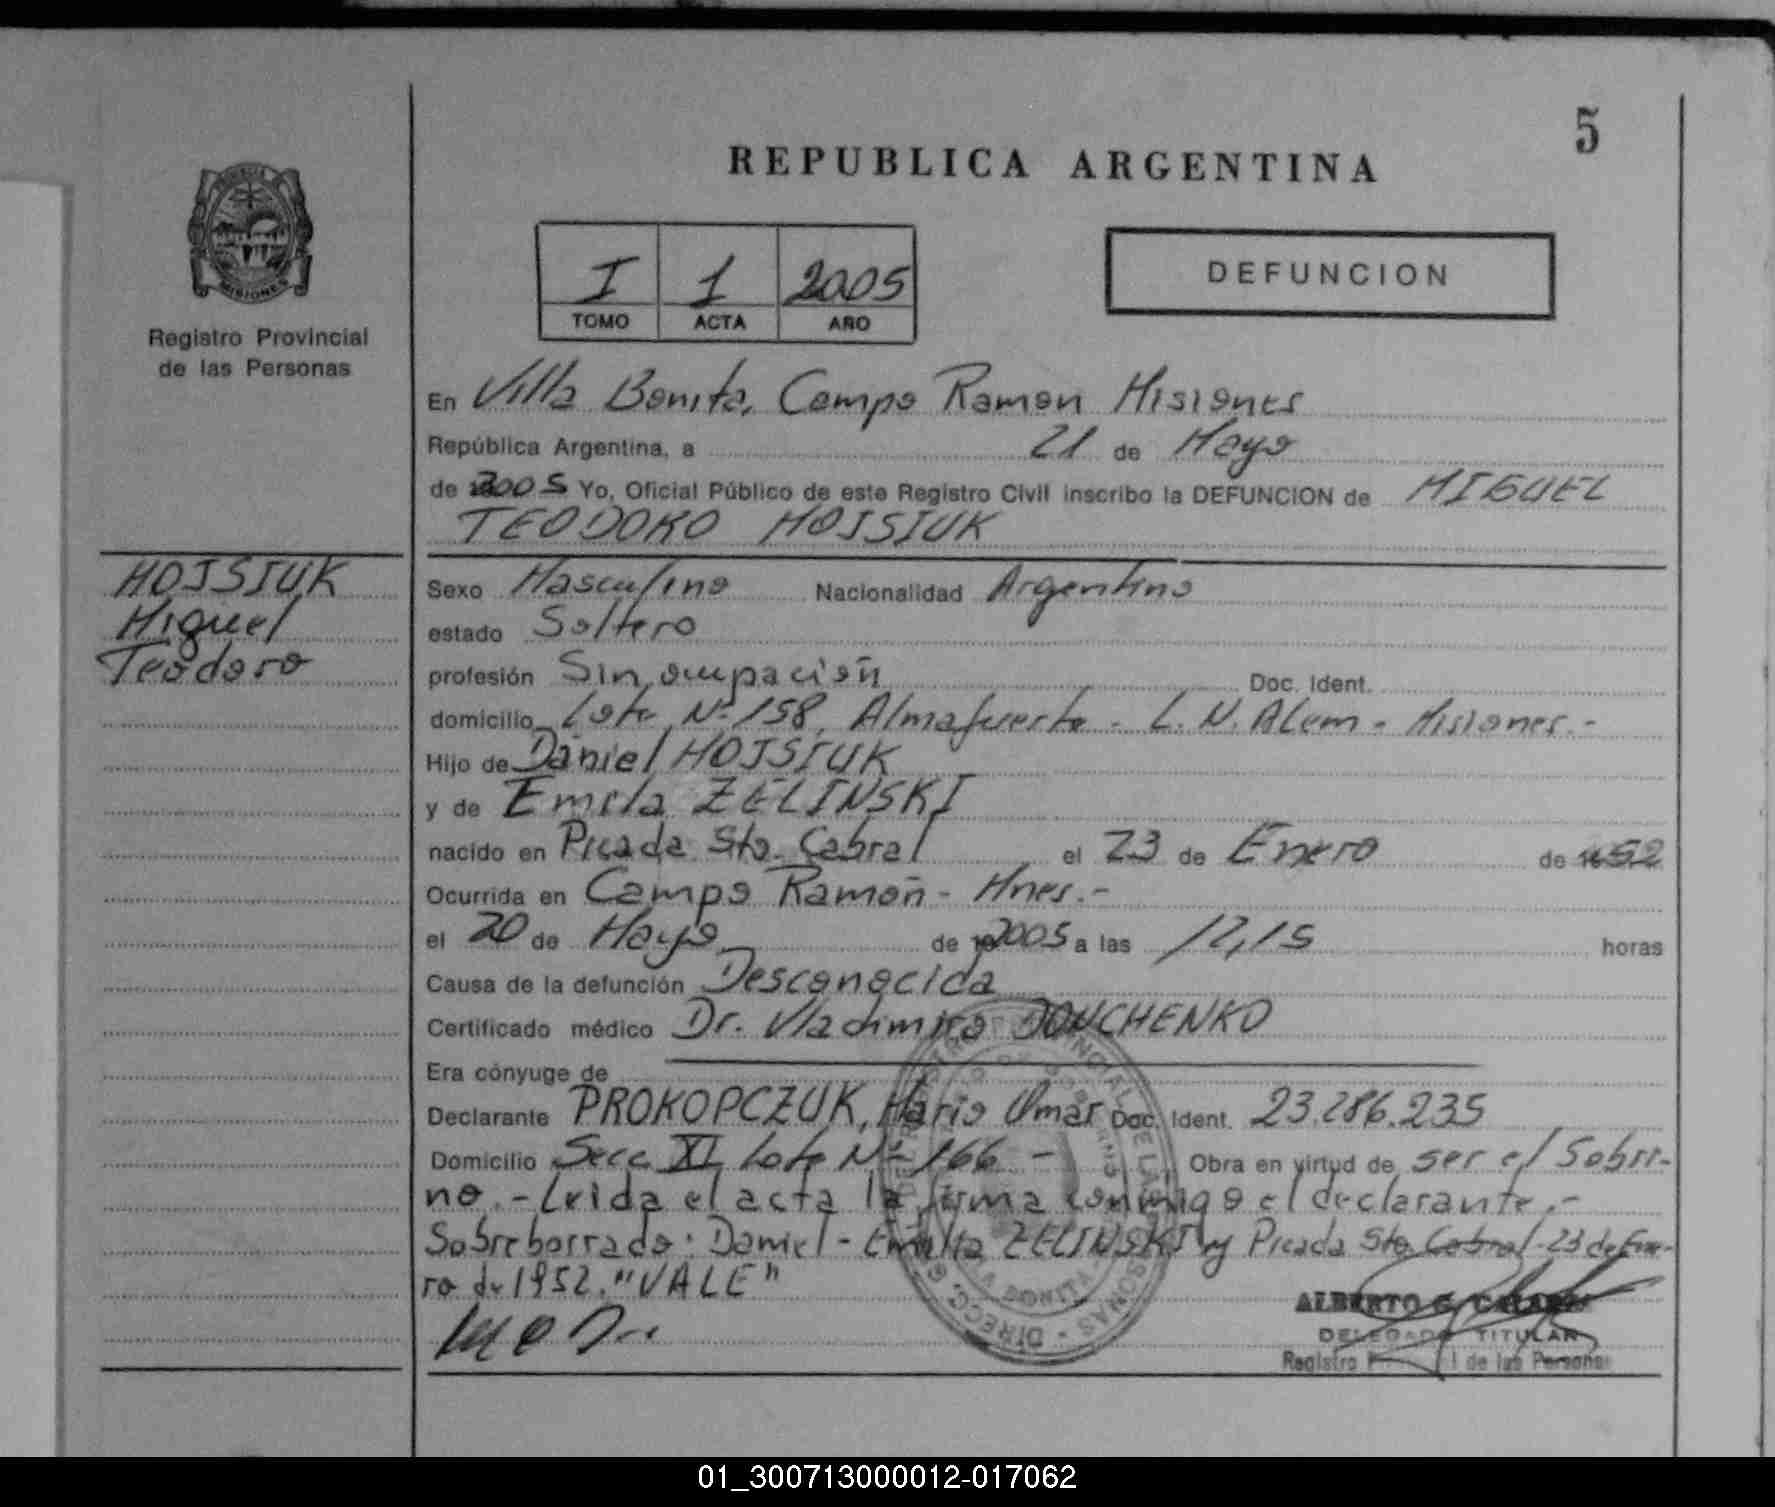 5
REPUBLICA ARGENTINA
MISIONES
Registro Provincial
de las Personas
I 1 2005
TOMO ACTA AÑO
DEFUNCION
En Villa Bonita, Campo Ramon Misiones
República Argentina, a 21 de Mayo
de 2005 Yo, Oficial Público de este Registro Civil inscribo la DEFUNCION de MIGUEL
TEODORO HOJSIUK
HOJSIUK
Miguel
Teodoro
Sexo Masculino Nacionalidad Argentino
estado Soltero
profesión Sin ocupación Doc. Ident.
domicilio Lote Nº 158, Almafuerte - L. N. Alem - Misiones.-
Hijo de Daniel HOJSIUK
y de Emilia ZELINSKI
nacido en Picada Sto. Cabral el 23 de Enero de 1952
Ocurrida en Campo Ramón - Mnes.-
el 20 de Mayo de 2005 a las 12,15 horas
Causa de la defunción Desconocida
Certificado médico Dr. Vladimiro DONCHENKO
Era cónyuge de
Declarante PROKOPCZUK, Mario Omar Doc. Ident. 23.286.235
Domicilio Secc XI Lote Nº 166 - Obra en virtud de ser el Sobri-
no.- Leida el acta la firma conmigo el declarante.-
Sobreborrado: Daniel - Emilia ZELINSKI y Picada Sto. Cabral - 23 de Ene-
ro de 1952. "VALE"
ALBERTO
DELEGADO TITULAR
Registro de las Personas
01_300713000012-017062